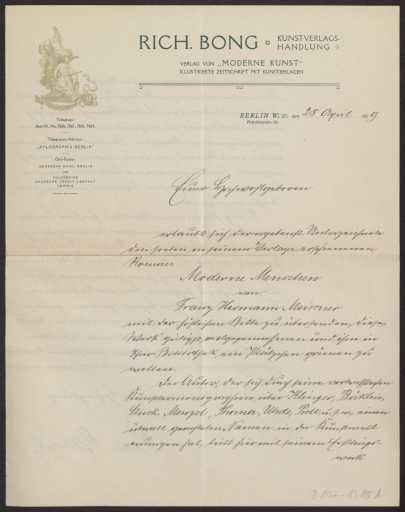 RICH. BONG
KUNSTVERLAGS-
HANDLUNG
VERLAG VON „MODERNE KUNST"
ILLUSTRIERTE ZEITSCHRIFT MIT KUNSTBEILAGEN
Telephon:
Telegramm-Adresse:
BERLIN W. den 28 April
Euer Hochwohlgeboren
erlaubt sich der ergebenst Unterzeichnete
den soeben in seinem Verlage erschienenen
Roman
Moderne Menschen
von
Franz Hermann Meissner
mit der höflichen Bitte zu übersenden, dieses
Werk gütigst entgegennehmen und ihm in
Ihrer Bibliothek ein Plätzchen gönnen zu
wollen.
Der Autor, der sich durch seine
über Klinger, Böcklin,
Stuck, Menzel, Thoma, Uhde, u.s.w. einen
Namen in der Kunstwelt
errungen hat, tritt hier mit seinem Erstlings-
werk